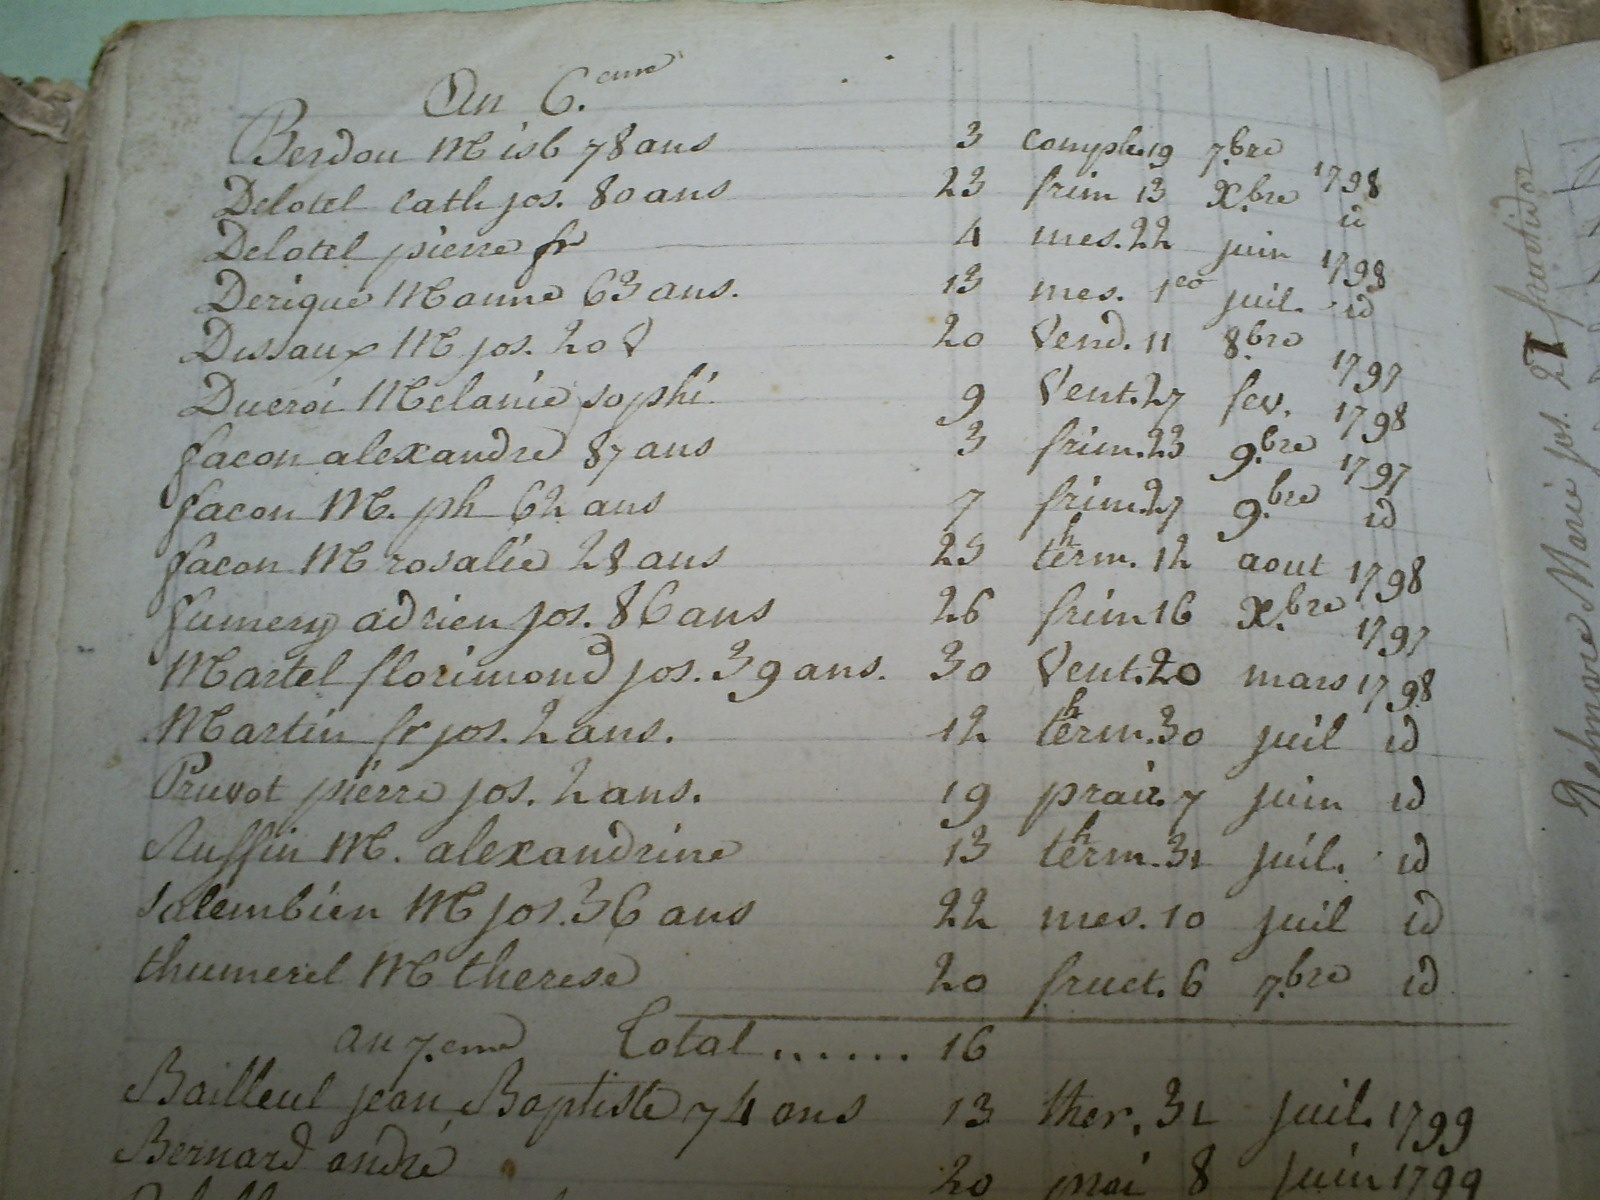 An 6.eme
Berdou M isb 78 ans 3 comple. 19 7.bre 1798
Delotel cath jos. 80 ans 23 frim 13 X.bre id
Delotel pierre fr 4 mes. 22 juin 1798
Derique M anne 63 ans. 13 mes. 1er juil. id
Dissaux M jos. 20 20 Vend. 11 8.bre 1797
Ducroi Melanie sophi 9 Vent. 27 fev. 1798
facon alexandre 87 ans 3 frim. 23 9.bre 1797
facon M. ph 62 ans 7 frim. 27 9.bre id
facon M rosalie 28 ans 25 therm. 12 aout 1798
fumery adrien jos. 86 ans 26 frim 16 X.bre 1797
Martel florimond jos. 39 ans. 30 Vent. 20 mars 1798
Martin fr jos. 2 ans. 12 therm. 30 juil id
Pruvot pierre jos. 2 ans. 19 prair. 7 juin id
Ruffin M. alexandrine 13 therm. 31 juil. id
salembien M jos. 36 ans 22 mes. 10 juil id
thumerel M therese 20 fruct. 6 7.bre id
an 7.eme Total ...... 16
Bailleul jean Baptiste 74 ans 13 ther. 31 juil. 1799
Bernard andré 20 8 juin 1799
Delmore Marie jos. 21 fructidor